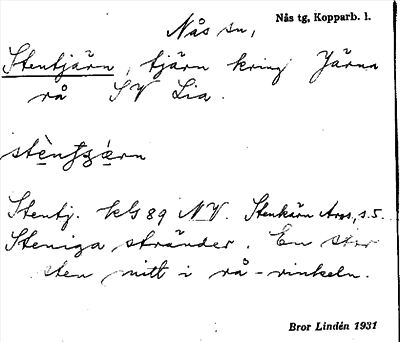 Nås sn,
Nås tg, Kopparb. l.
Stentjärn, tjärn kring Järna
rå SV Lia.
Stentj. kls 89 NV. Stenkärn Aros, s. 5.
Steniga stränder. En stor
sten mitt i rå-vinkeln.
Bror Lindén 1931